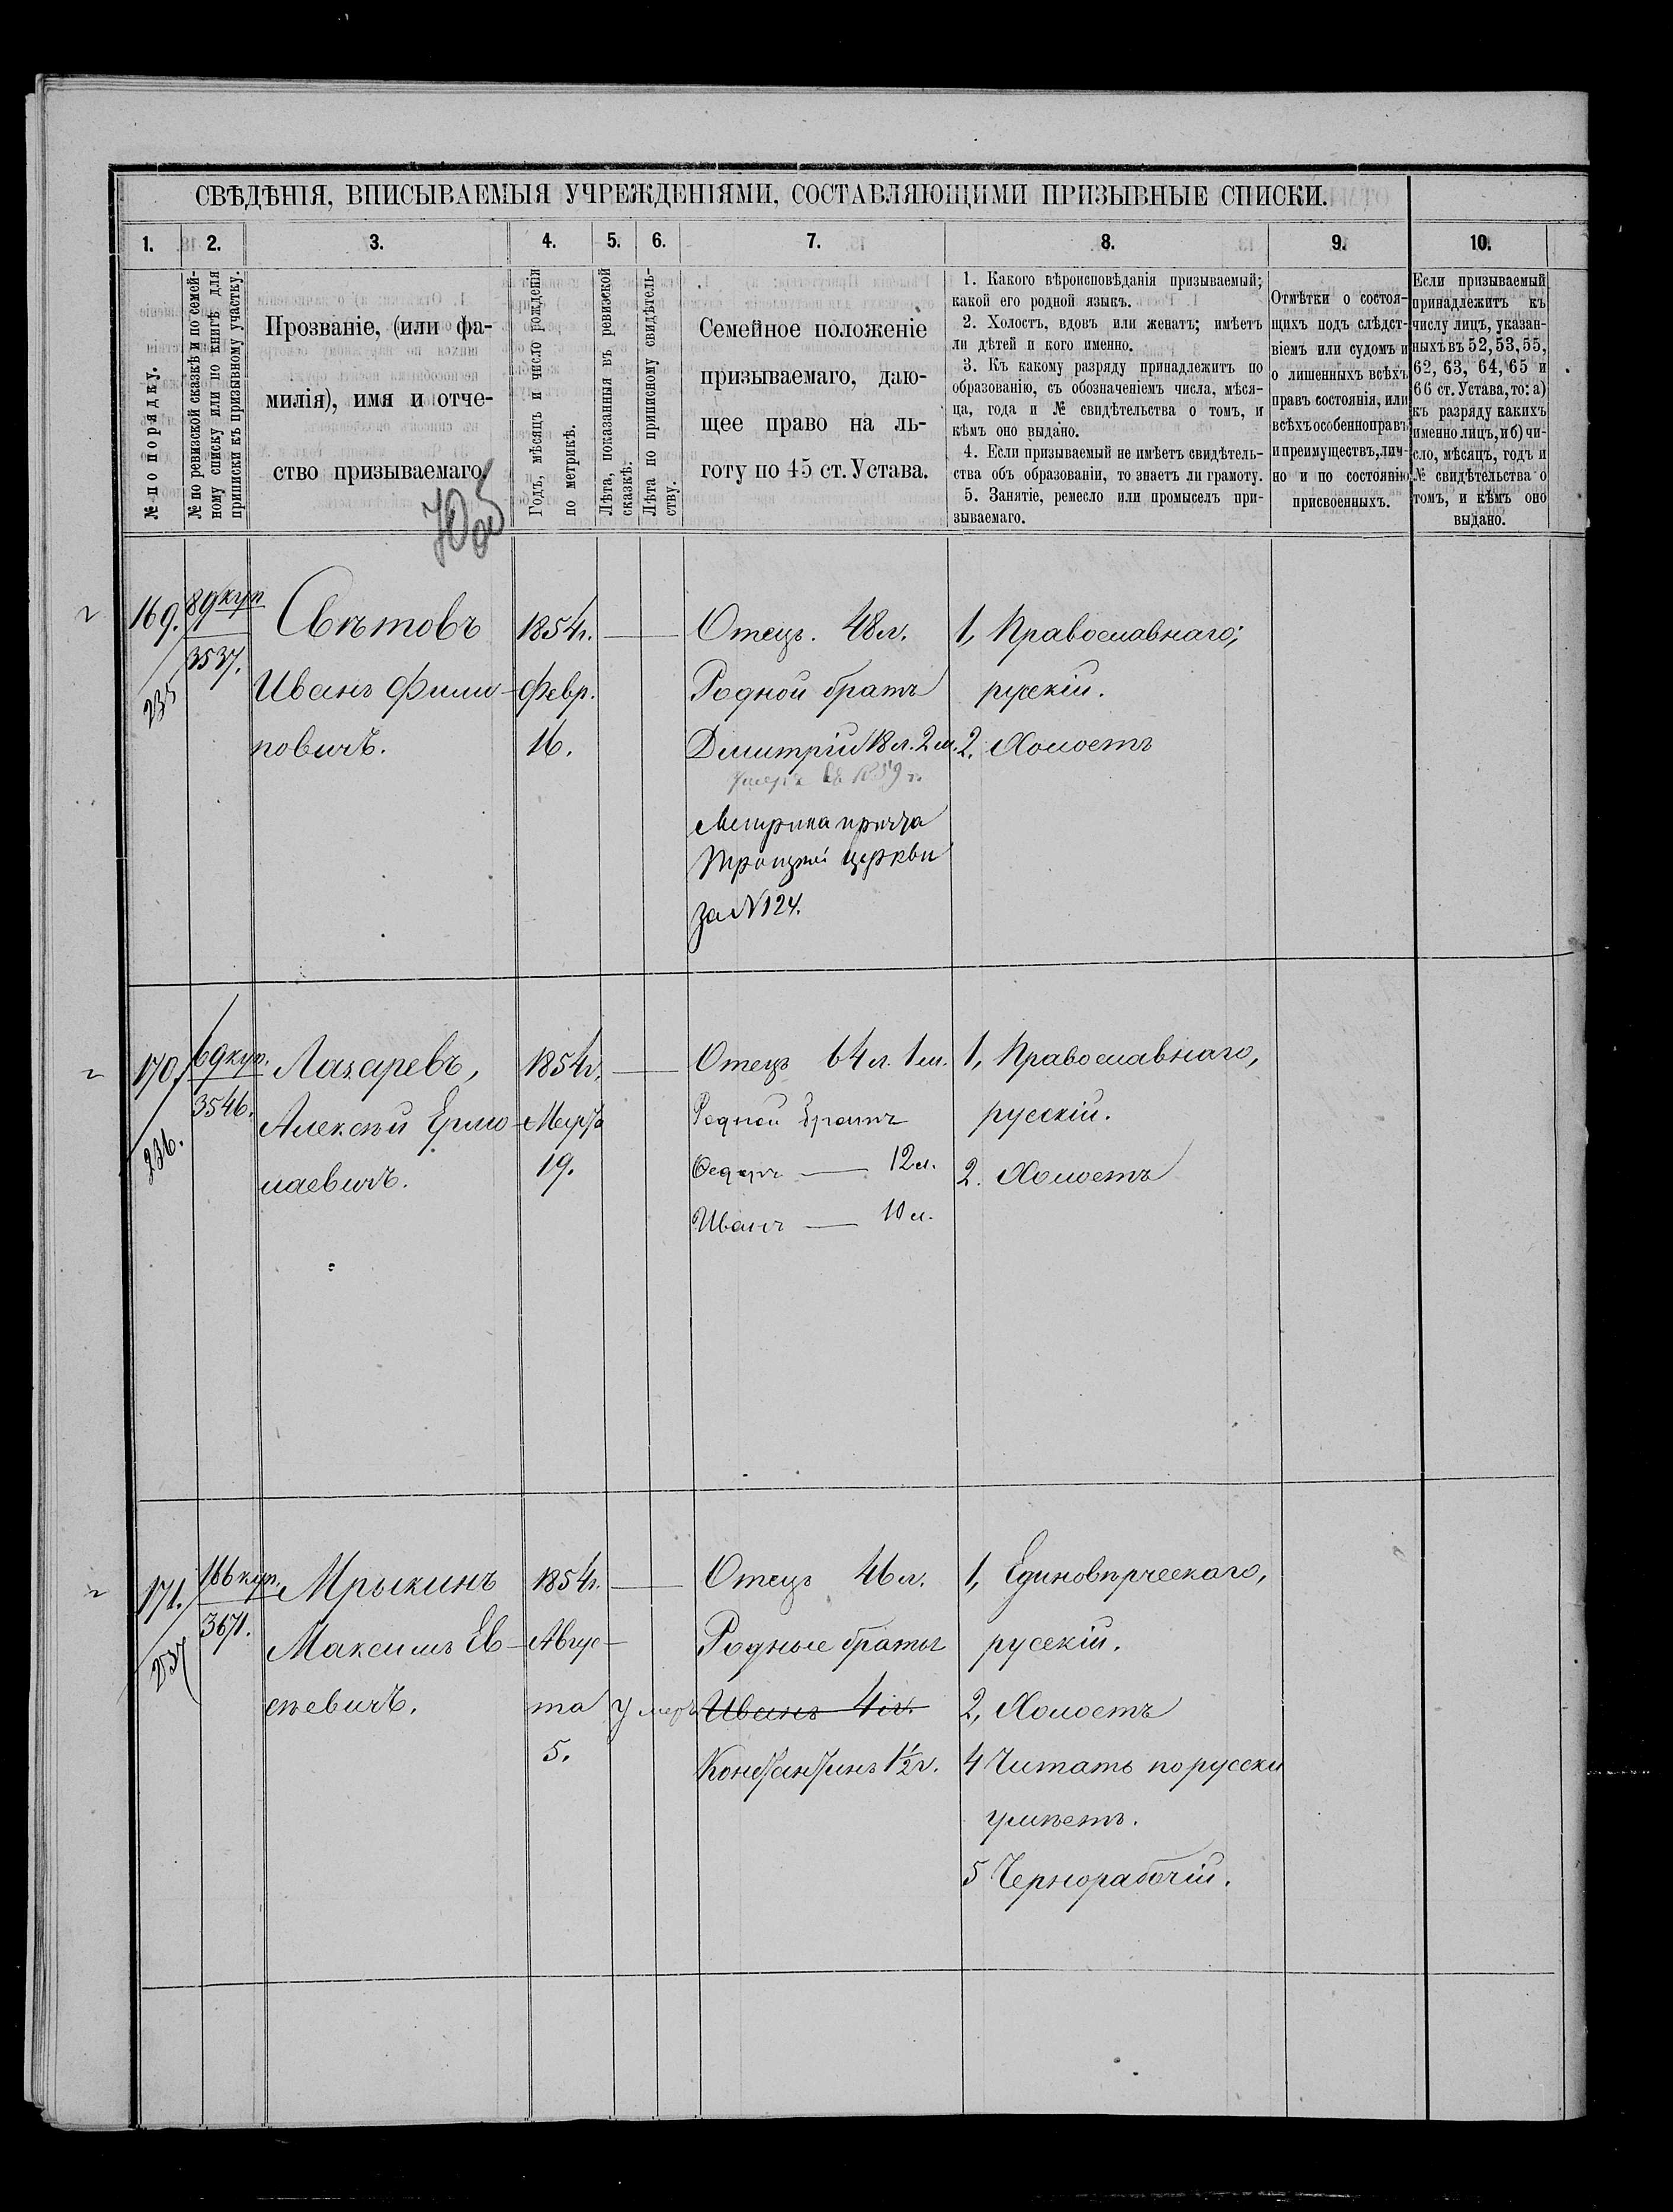 СВѢДѢНІЯ, ВПИСЫВАЕМЫЯ УЧРЕЖДЕНІЯМИ, СОСТАВЛЯЮЩИМИ ПРИЗЫВНЫЕ СПИСКИ.
1. 2. 3. 4. 5. 6. 7. 8. 9. 10.
№ по порядку.
№ по ревизской сказкѣ и по семей-
ному списку или по книгѣ для
приписки къ призывному участку.
Прозваніе, (или фа-
милія), имя и отче-
ство призываемаго.
Годъ, мѣсяцъ и число рожденія
по метрикѣ.
Лѣта, показанныя въ ревизской
сказкѣ.
Лѣта по приписному свидѣтель-
ству.
Семейное положеніе
призываемаго, даю-
щее право на ль-
готу по 45 ст. Устава.
1. Какого вѣроисповѣданія призываемый;
какой его родной языкъ.
2. Холостъ, вдовъ или женатъ; имѣетъ
ли дѣтей и кого именно.
3. Къ какому разряду принадлежитъ по
образованію, съ обозначеніемъ числа, мѣся-
ца, года и № свидѣтельства о томъ, и
кѣмъ оно выдано.
4. Если призываемый не имѣетъ свидѣтель-
ства объ образованіи, то знаетъ ли грамоту.
5. Занятіе, ремесло или промыселъ при-
зываемаго.
Отмѣтки о состоя-
щихъ подъ слѣдст-
віемъ или судомъ и
о лишенныхъ всѣхъ
правъ состоянія, или
всѣхъ особенно правъ
и преимуществъ, лич-
но и по состоянію
присвоенныхъ.
Если призываемый
принадлежитъ къ
числу лицъ, указан-
ныхъ въ 52, 53, 55,
62, 63, 64, 65 и
66 ст. Устава, то: а)
къ разряду какихъ
именно лицъ, и б) чи-
сло, мѣсяцъ, годъ и
№ свидѣтельства о
томъ, и кѣмъ оно
выдано.
169.
235
89 куп
3537.
Свѣтовъ
Иванъ Фили-
повичъ.
1854 г.
Февр.
16.
Отецъ. 48 л.
Родной братъ
Димитрій 18 л. 2 м.
умеръ въ 1859 г.
Метрика причта
Троицкой церкви
за № 124.
1, Православнаго;
русскій.
2. Холостъ
170.
236.
69 куп.
3546.
Лазаревъ,
Алексѣй Ермо-
лаевичъ.
1854 г.
Марта
19.
Отецъ 64 л. 1 м.
Родной братъ
Федоръ — 12 л.
Иванъ — 10 л.
1, Православнаго,
русскій.
2. Холостъ
171.
237
166 куп.
3671.
Мрыкинъ
Максимъ Ев-
сѣевичъ.
1854 г.
Авгус-
та
5.
Отецъ 46 л.
Родные братья
умеръ Иванъ 4 г.
Константинъ 1½ г.
1, Единовѣрческаго,
русскій.
2, Холостъ
4 Читать по русски
умѣетъ.
5 Чернорабочій.